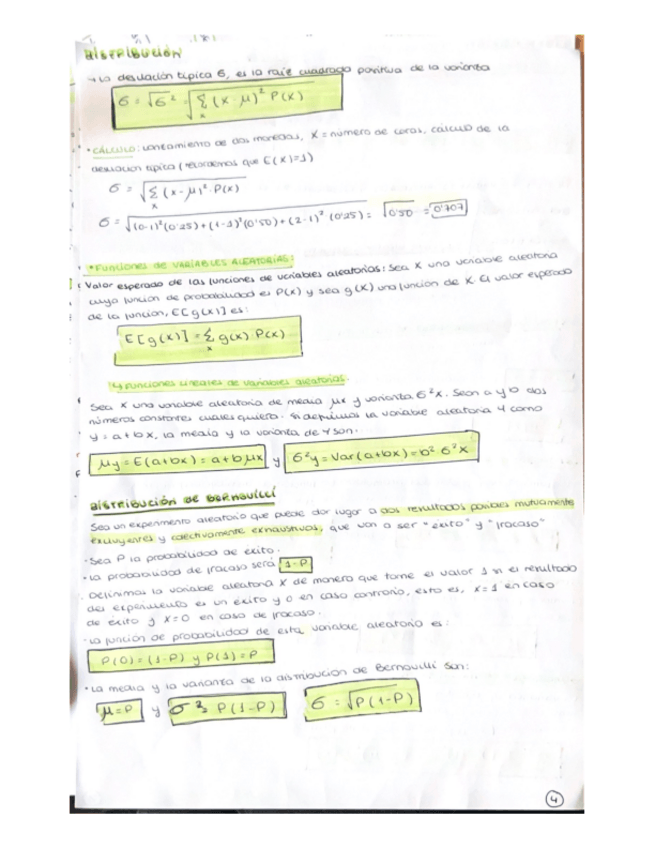 DISTRIBUCIÓN
→ La desviación típica σ, es la raíz cuadrada positiva de la varianza
σ = √σ² = √Σx (x-μ)² P(x)
• CÁLCULO: Lanzamiento de dos monedas, X = número de caras, cálculo de la
desviación típica (recordemos que E(X)=1)
σ = √Σx (x-μ)² · P(x)
σ = √(0-1)²(0'25)+(1-1)²(0'50)+(2-1)²(0'25) = √0'50 = 0'707
• FUNCIONES DE VARIABLES ALEATORIAS:
Valor esperado de las funciones de variables aleatorias: Sea X una variable aleatoria
cuya función de probabilidad es P(x) y sea g(X) una función de X. El valor esperado
de la función, E[g(x)] es:
E[g(x)] = Σx g(x) P(x)
↳ Funciones lineales de variables aleatorias.
Sea X una variable aleatoria de media μx y varianza σ²x. Sean a y b dos
números constantes cualesquiera. Si definimos la variable aleatoria Y como
y = a + bx, la media y la varianza de Y son.
μy = E(a+bx) = a+bμx y σ²y = Var(a+bx) = b² σ²x
DISTRIBUCIÓN DE BERNOUILLI
Sea un experimento aleatorio que puede dar lugar a dos resultados posibles mutuamente
excluyentes y colectivamente exhaustivos, que van a ser "éxito" y "fracaso"
· Sea P la probabilidad de éxito.
· La probabilidad de fracaso será 1-P
· Definimos la variable aleatoria X de manera que tome el valor 1 si el resultado
del experimento es un éxito y 0 en caso contrario, esto es, x=1 en caso
de éxito y x=0 en caso de fracaso.
· La función de probabilidad de esta variable aleatoria es:
P(0) = (1-P) y P(1) = P
• La media y la varianza de la distribución de Bernouilli son:
μ=P y σ² = P(1-P) σ = √P(1-P)
4